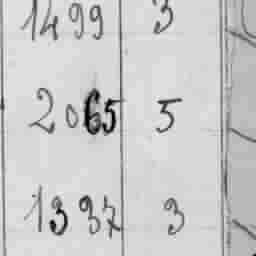 1499 3
2065 5
1337 3